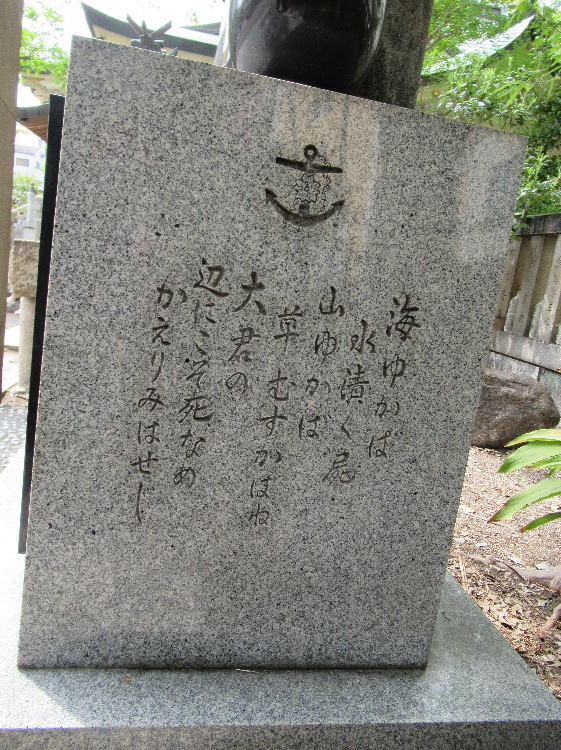 海ゆかば
水漬く屍
山ゆかば
草むすかはね
大君の
辺にこそ死なめ
かえりみはせじ